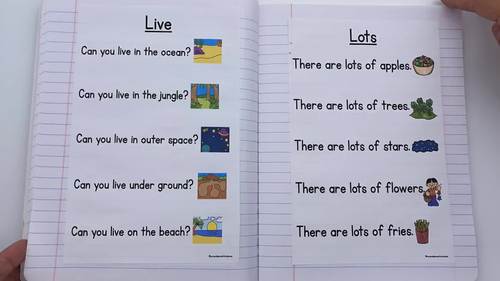 Live
Can you live in the ocean?
Can you live in the jungle?
Can you live in outer space?
Can you live under ground?
Can you live on the beach?
Lots
There are lots of apples.
There are lots of trees.
There are lots of stars.
There are lots of flowers.
There are lots of fries.